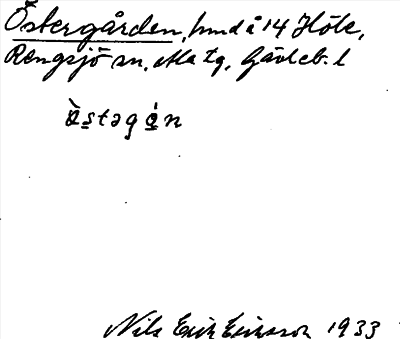 Östergården, hmd å 14 Höle,
Rengsjö sn. Ala tg, Gävleb. l
ə̀stəgɑ́n
Nils Erik Eriksson 1933